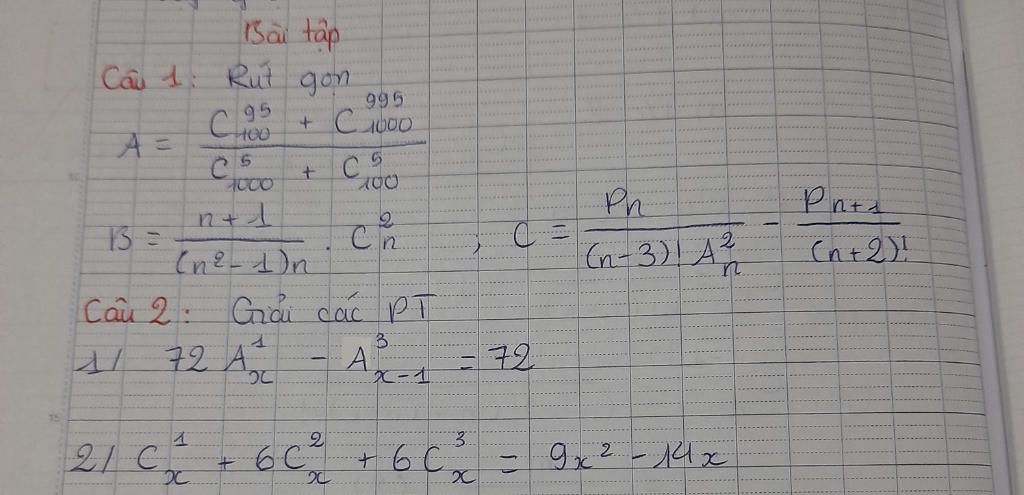 Bài tập
Câu 1: Rút gọn
A = \frac{C_{100}^{95} + C_{1000}^{995}}{C_{1000}^{5} + C_{100}^{5}}
B = \frac{n+1}{(n^2-1)n} . C_n^2 ; C = \frac{P_n}{(n-3)! A_n^2} - \frac{P_{n+1}}{(n+2)!}
Câu 2: Giải các PT
1/ 72 A_x^1 - A_{x-1}^3 = 72
2/ C_x^1 + 6C_x^2 + 6C_x^3 = 9x^2 - 14x